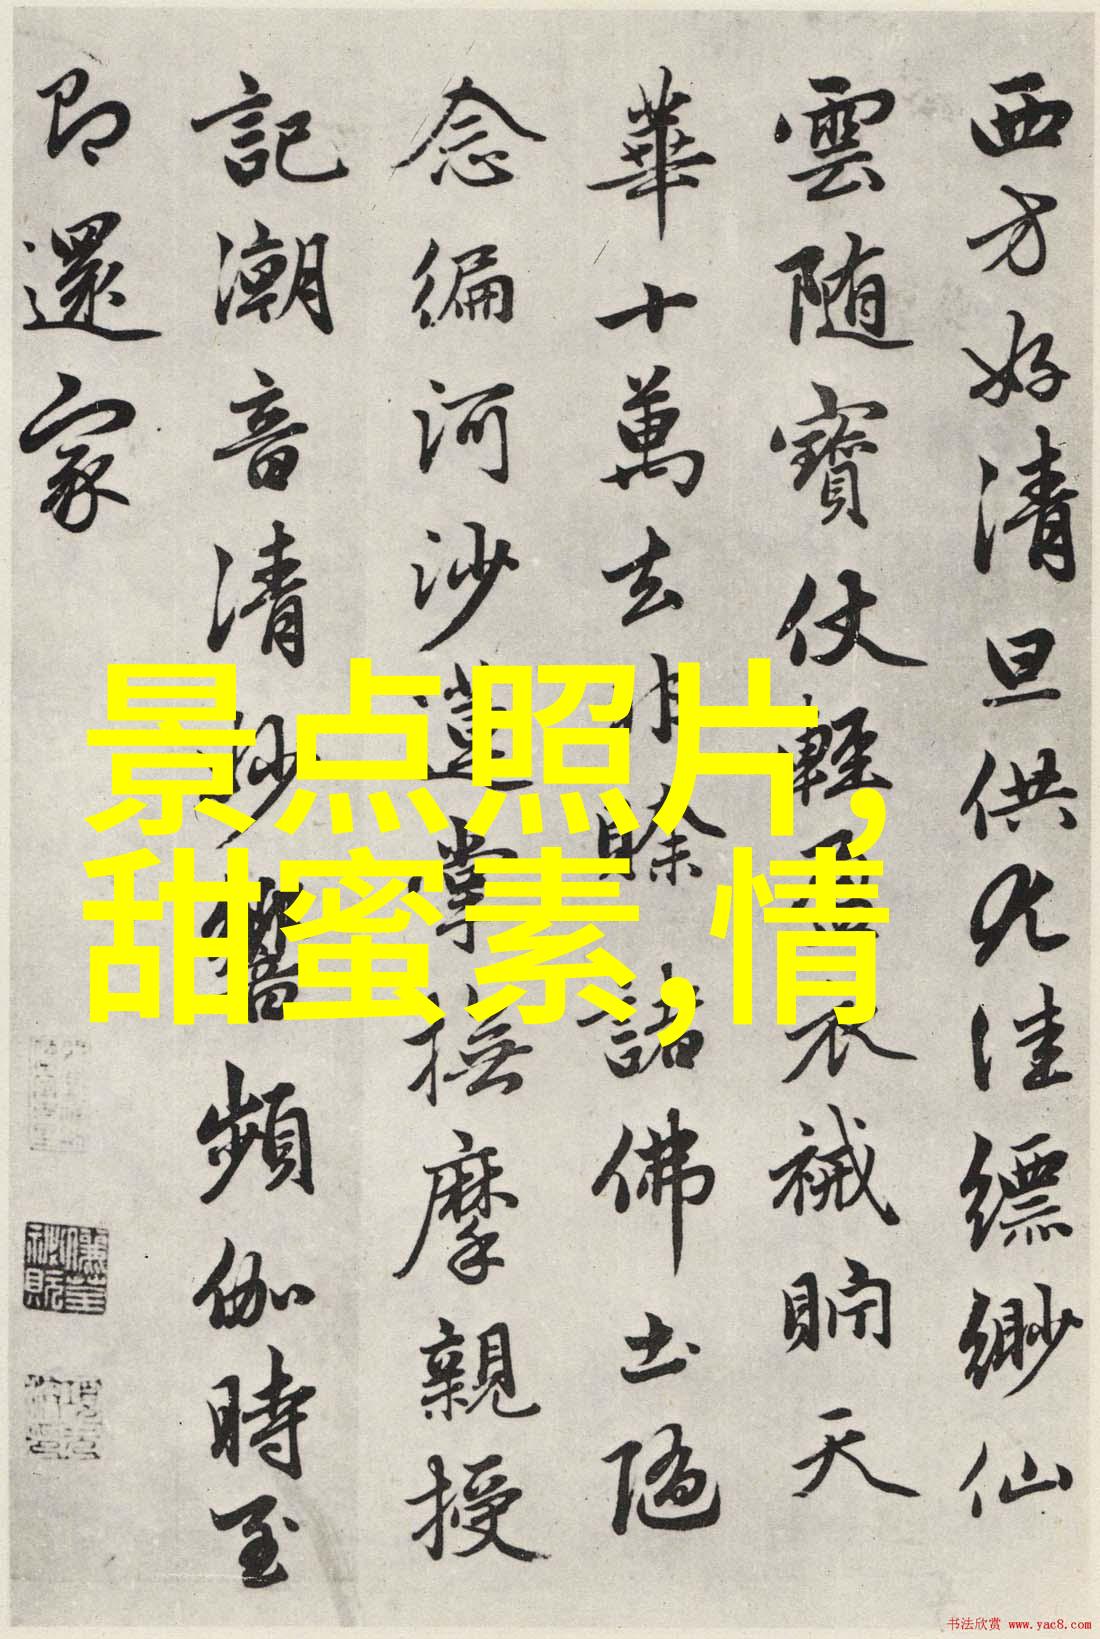 西方好清旦供尤佳縹緲仙
雲随寶仗輕衣裓貯天
華十萬去賒諸佛土隨
念徧河沙蓮掌撫摩親授
記潮音清妙響頻伽時至
即還家
景点照片,
甜蜜素,情
书法欣赏 www.yac8.com